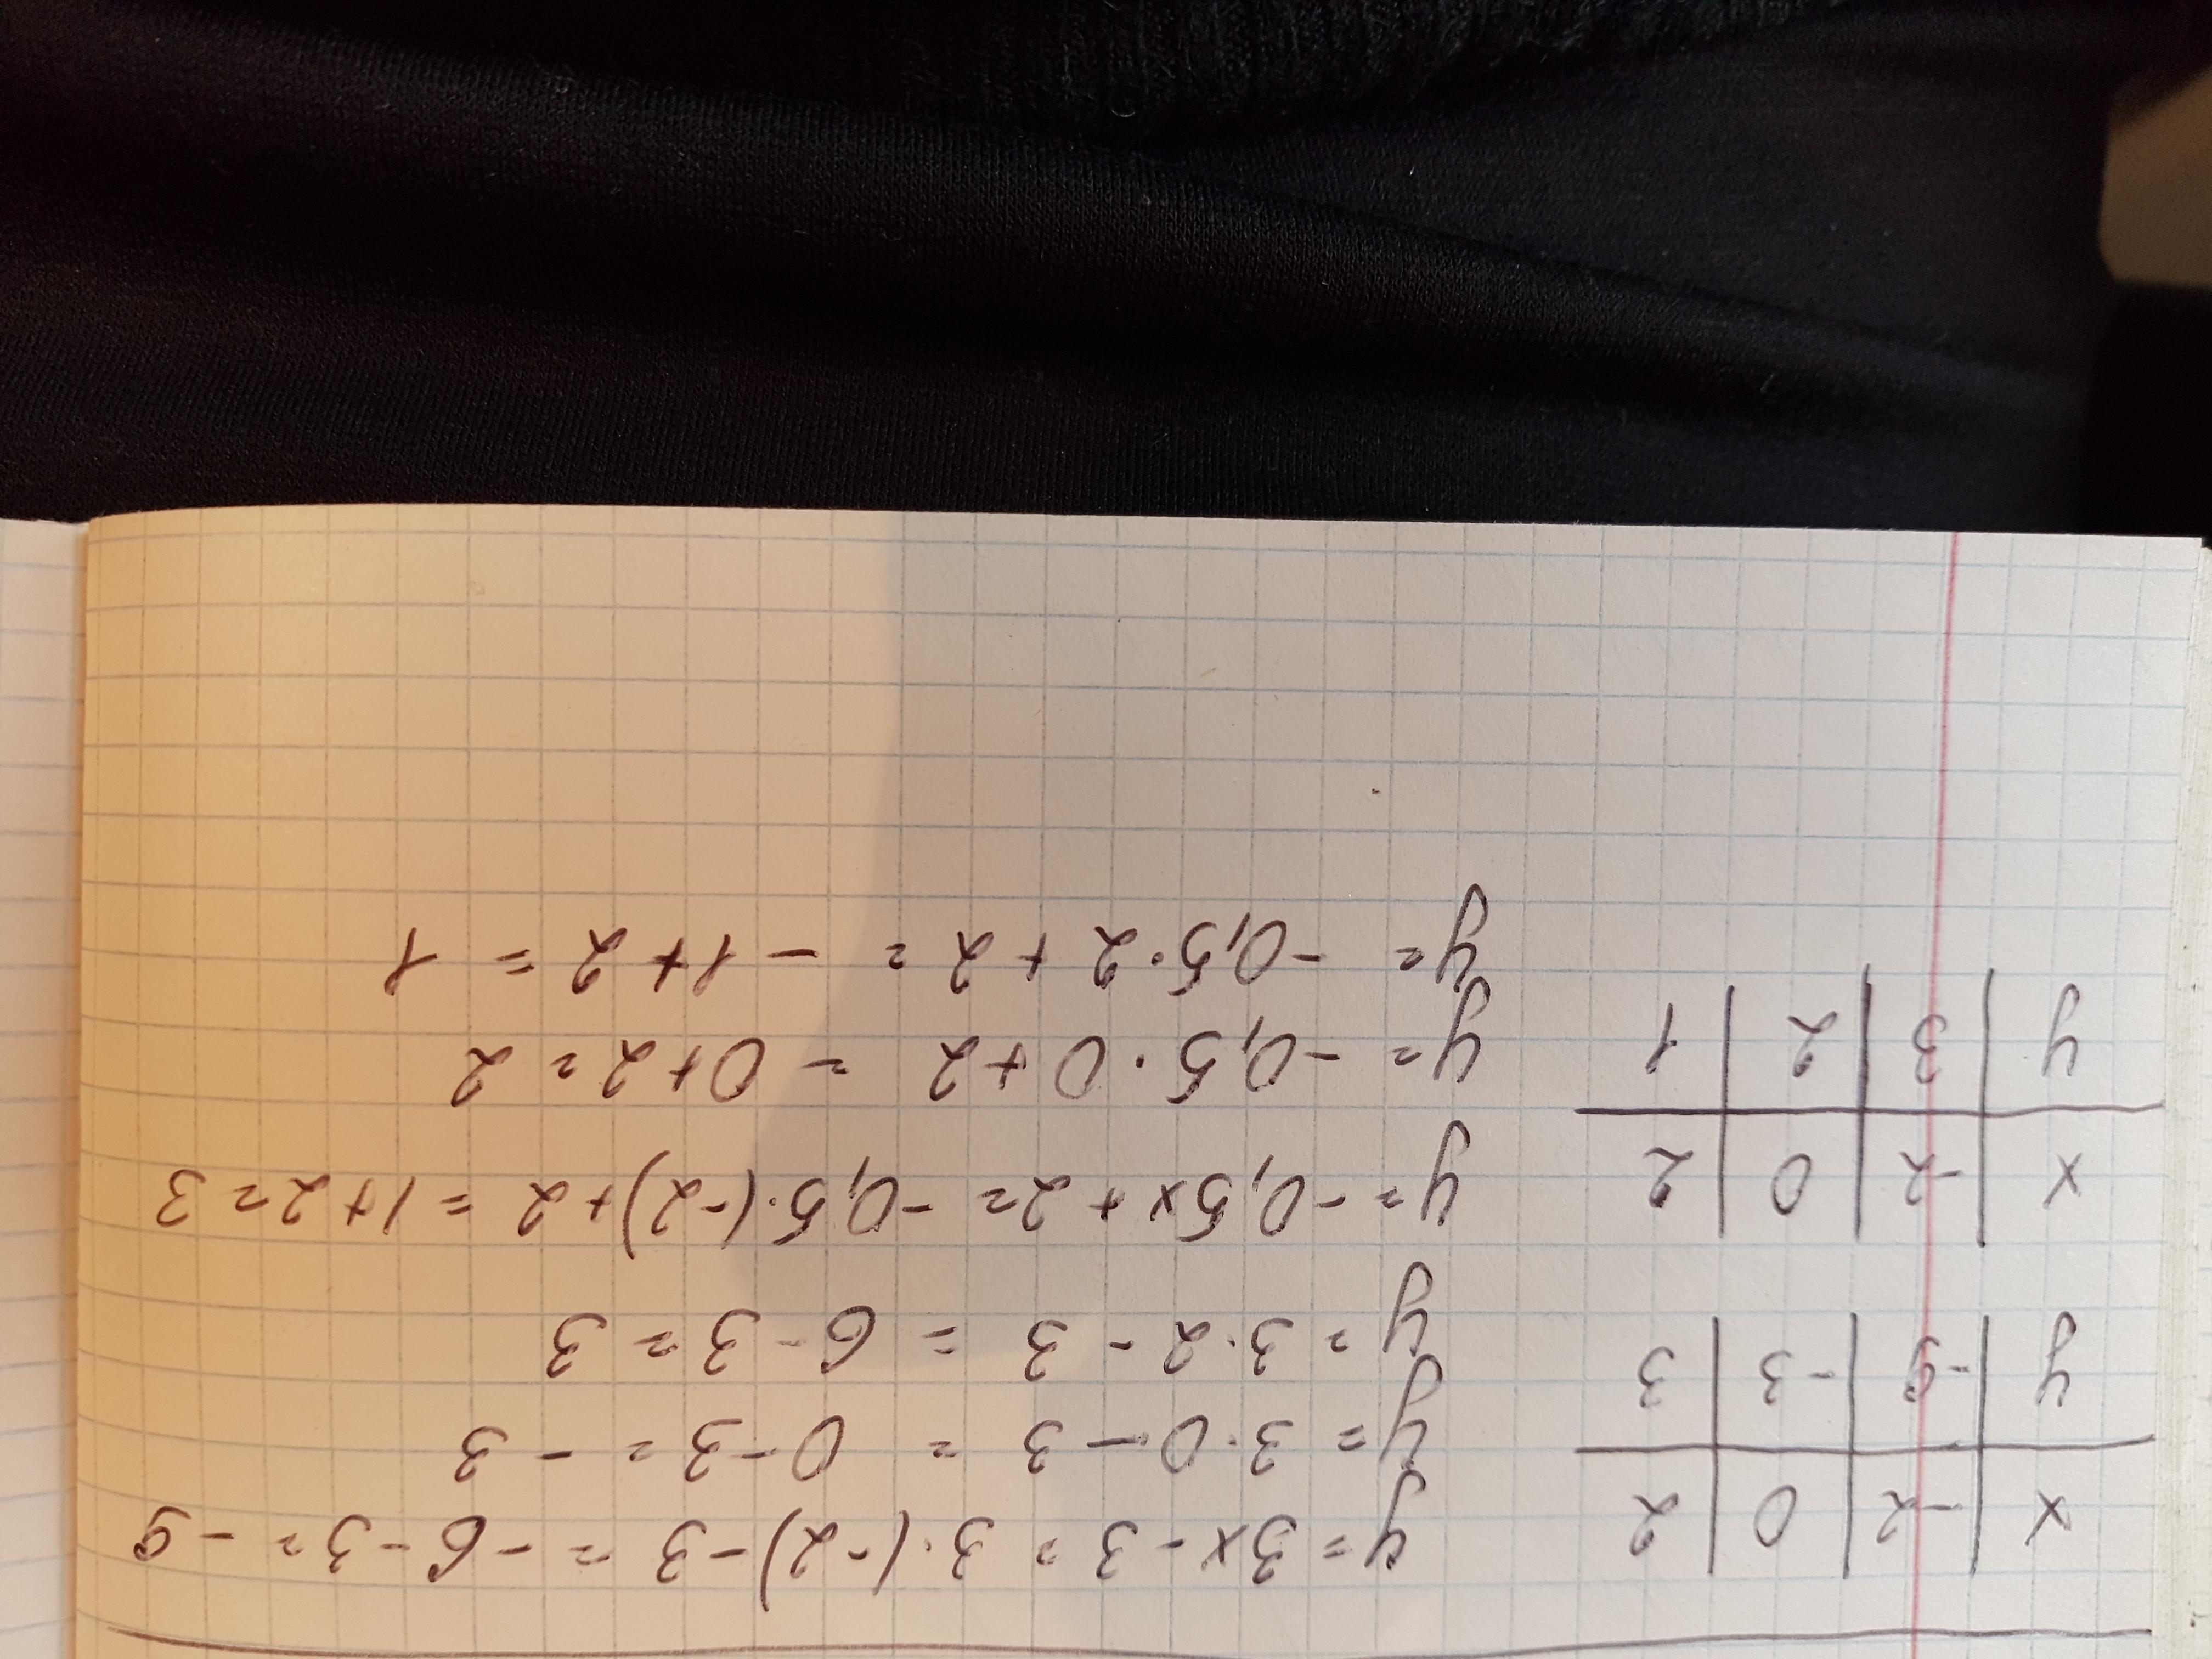 x | -2 | 0 | 2
y | -9 | -3 | 3
y = 3x - 3 = 3·(-2) - 3 = -6 - 3 = -9
y = 3·0 - 3 = 0 - 3 = -3
y = 3·2 - 3 = 6 - 3 = 3
x | -2 | 0 | 2
y | 3 | 2 | 1
y = -0,5x + 2 = -0,5·(-2) + 2 = 1 + 2 = 3
y = -0,5·0 + 2 = 0 + 2 = 2
y = -0,5·2 + 2 = -1 + 2 = 1